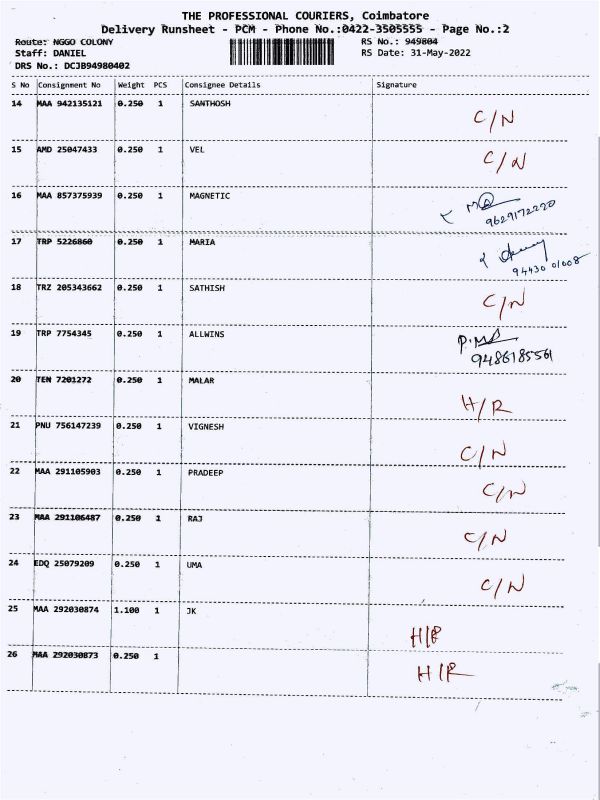 THE PROFESSIONAL COURIERS, Coimbatore
Delivery Runsheet - PCM - Phone No.:0422-3505555 - Page No.:2
Route: NGGO COLONY RS No.: 949804
Staff: DANIEL RS Date: 31-May-2022
DRS No.: DCJB94980402
S No Consignment No Weight PCS Consignee Details Signature
14 MAA 942135121 0.250 1 SANTHOSH C/N
15 AMD 25047433 0.250 1 VEL C/N
16 MAA 857375939 0.250 1 MAGNETIC
9629172220
17 TRP 5226860 0.250 1 MARIA
94430 01008
18 TRZ 205343662 0.250 1 SATHISH C/N
19 TRP 7754345 0.250 1 ALLWINS
9486185561
20 TEN 7201272 0.250 1 MALAR H/R
21 PNU 756147239 0.250 1 VIGNESH C/N
22 MAA 291105903 0.250 1 PRADEEP C/N
23 MAA 291106487 0.250 1 RAJ C/N
24 EDQ 25079209 0.250 1 UMA C/N
25 MAA 292030874 1.100 1 JK H/R
26 MAA 292030873 0.250 1 H/R